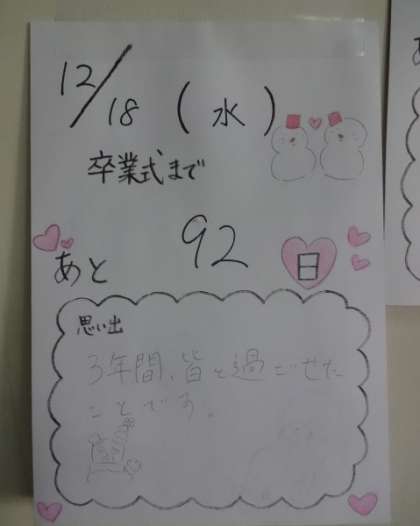 12/18(水)
卒業式まで
あと 92 日
思い出
3年間、皆と過ごせた
ことです。